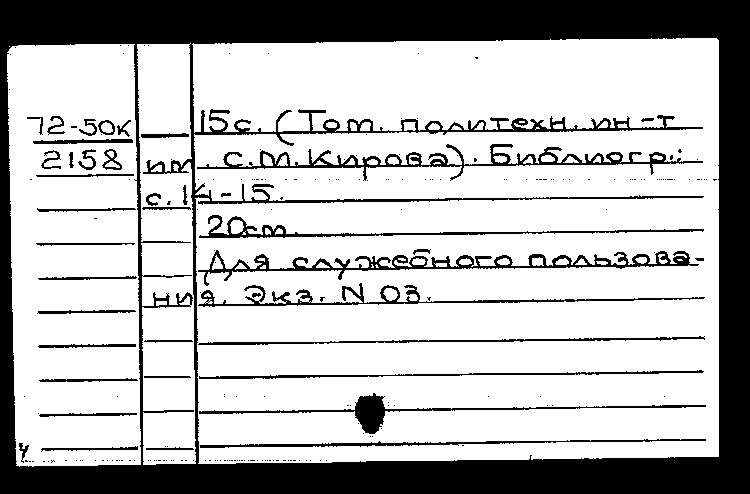 72-50к 15с. (Том. политехн. ин-т
2158 им. С.М.Кирова). Библиогр.:
с. 14-15.
20см.
Для служебного пользова-
ния. Экз. N 03.
4